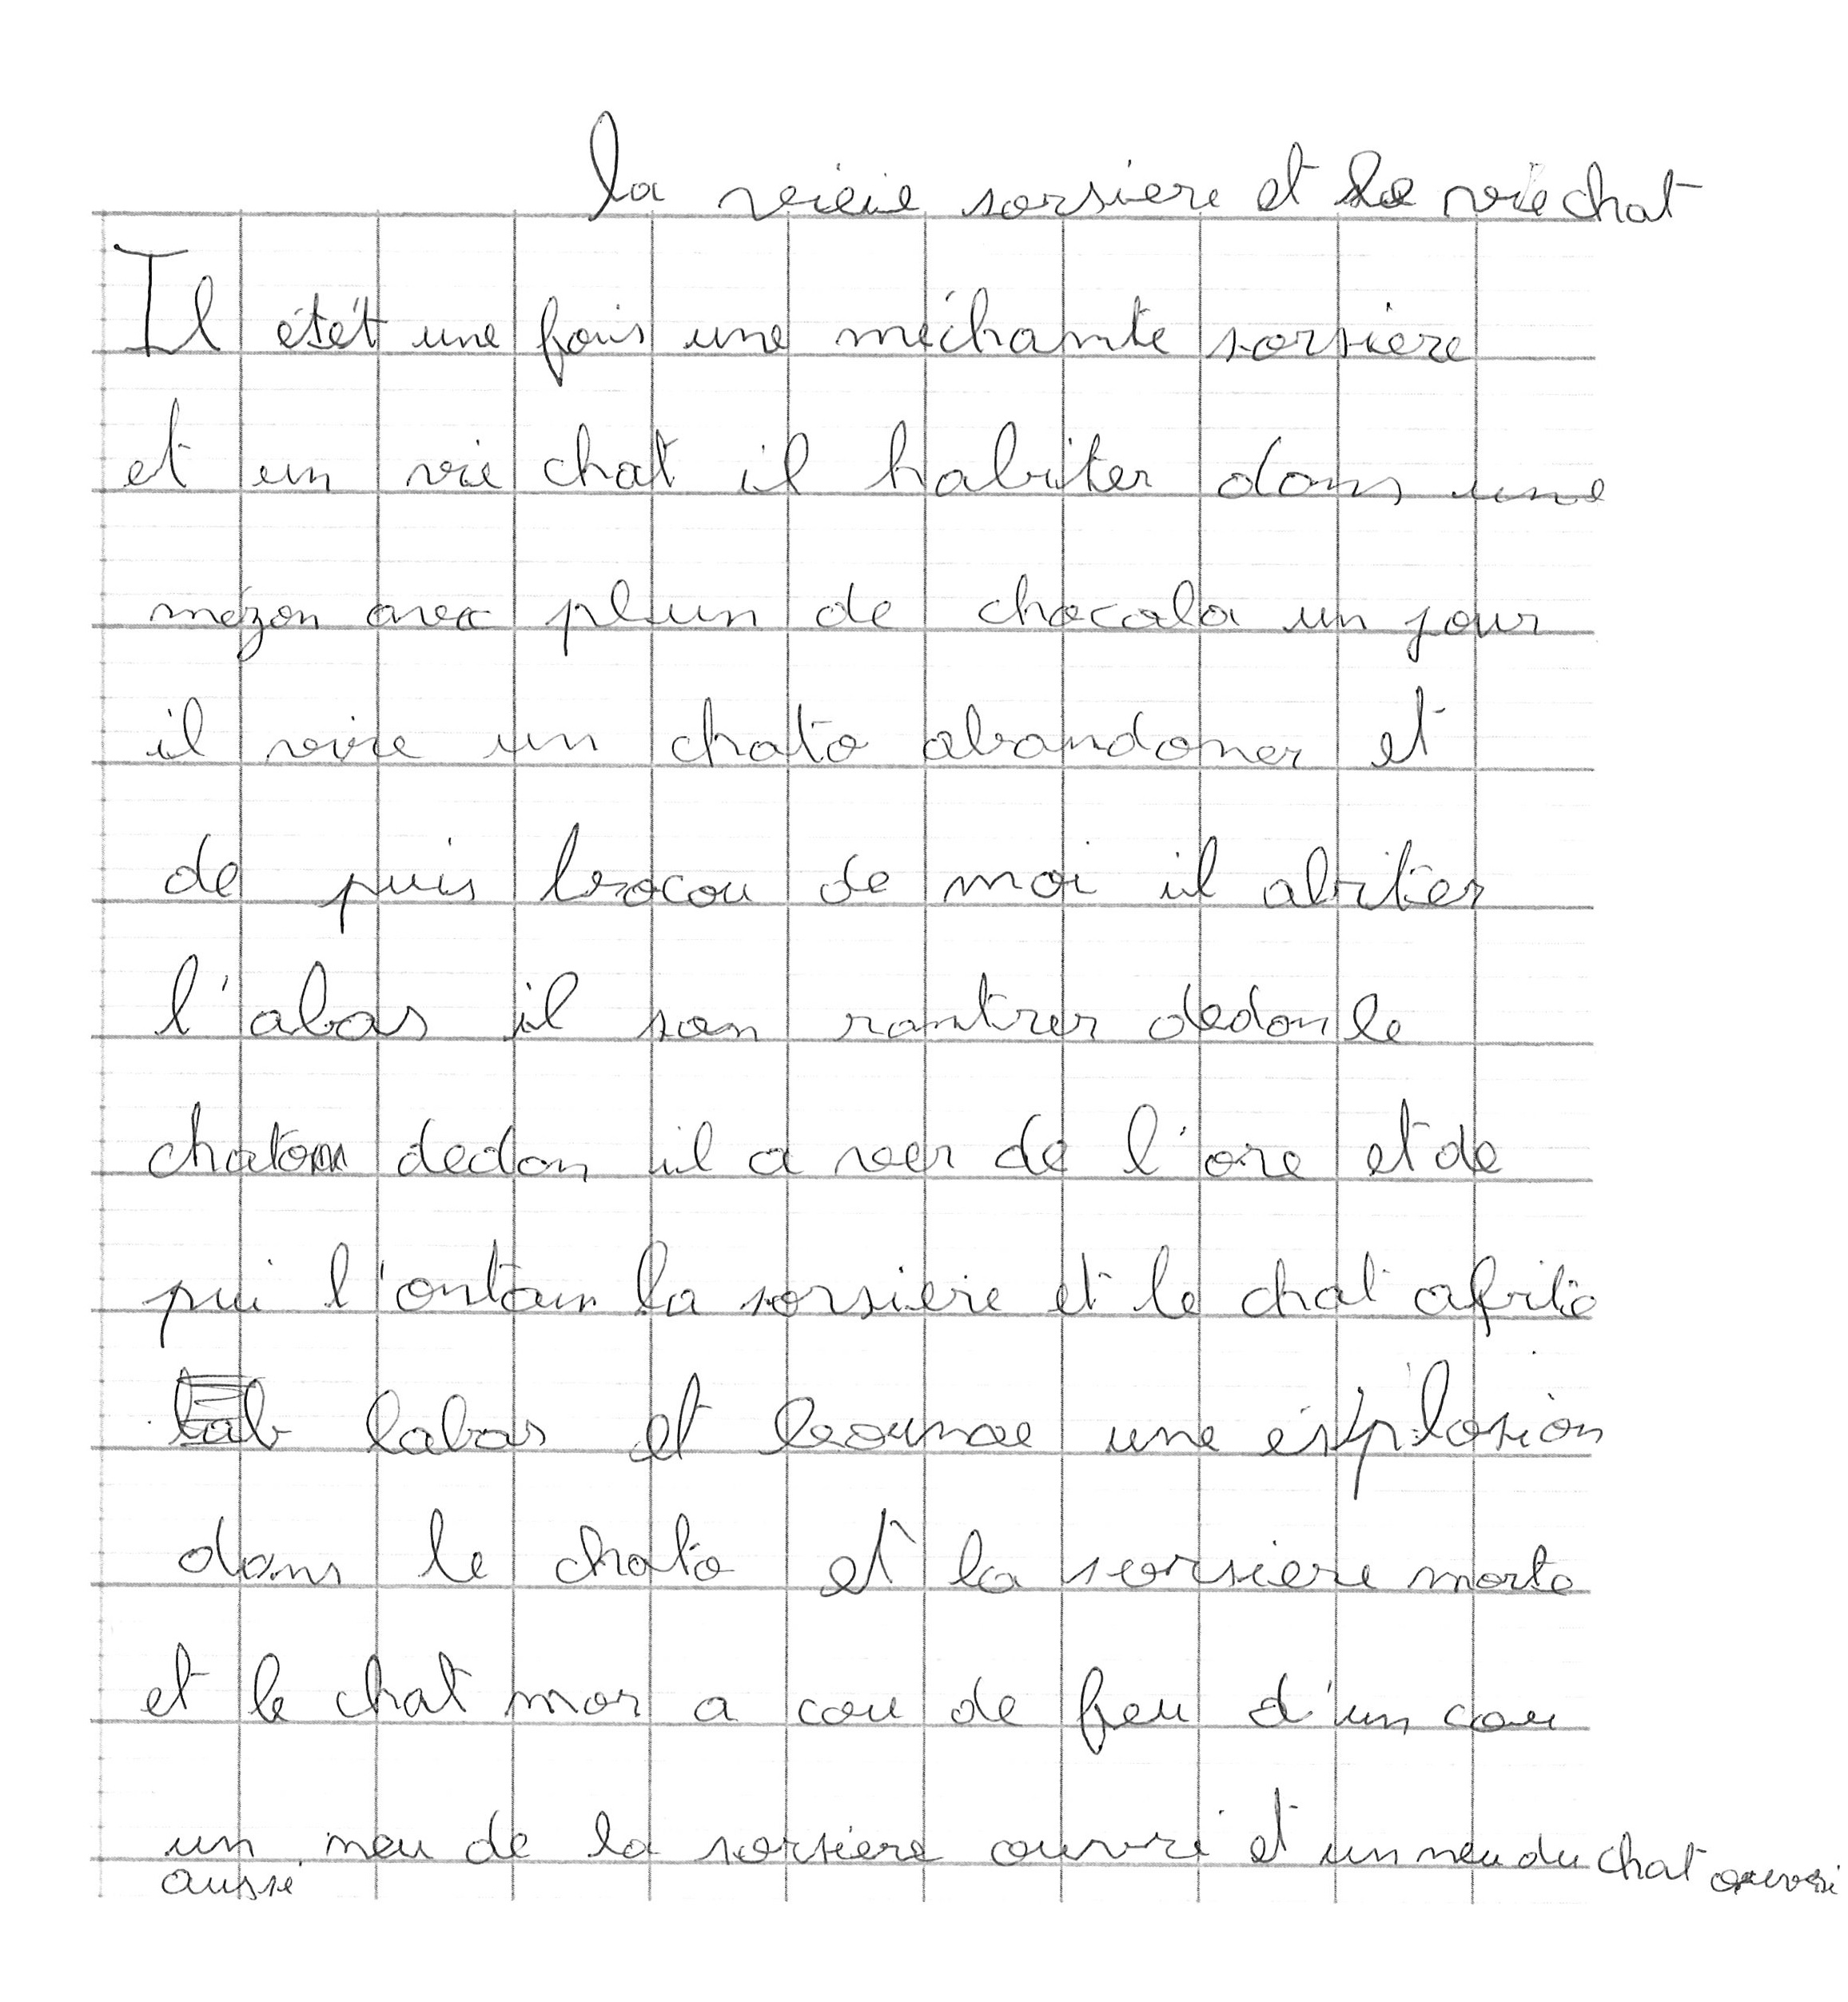 la vieie sorsiere et le vie chat
Il étét une fois une méchante sorsière
et un vie chat il habiter dans une
mézon avec pleun de chocola un jour
il vire un chato abandoner et
de puis bocou de moi il abiter
l'abas il son rantrer dedon le
chaton dedon il a ver de l'ore et de
pui l'ontan la sorsière et le chat abite
labas et une éxplosion
dans le chato et la sorsiere morte
et le chat mor a cou de feu d'un cou
un neu de la sorsiere ouvri et un neu du chat ouvri
aussi